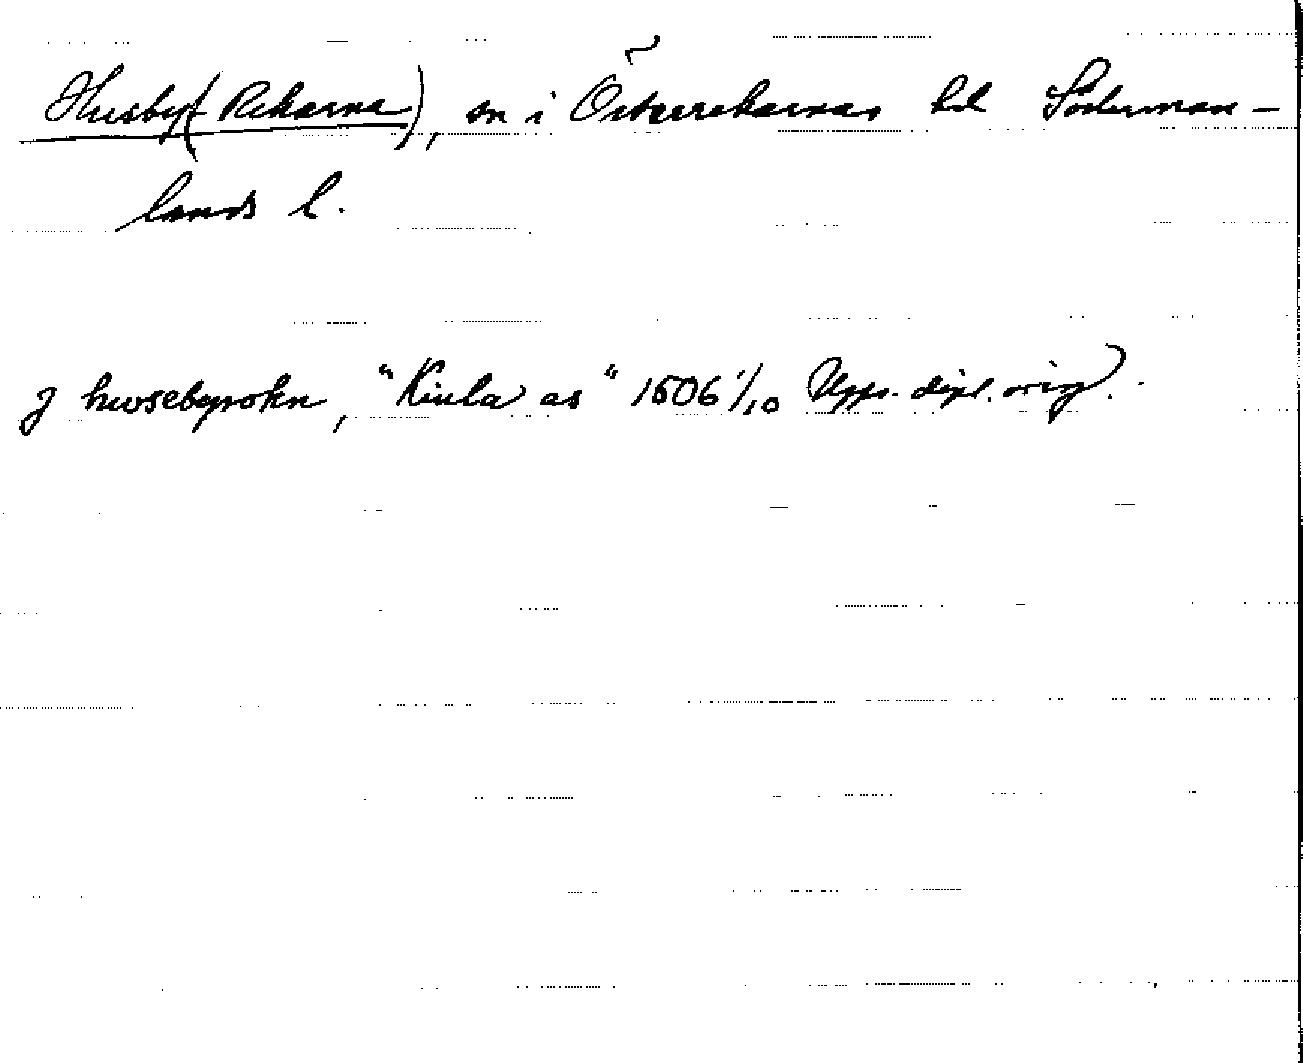 Husby (Rekarne), sn i Österrekarnas hd Söderman-
lands l.
J hwsebysokn, "Kiula as" 1506 1/10 Upps. dipl. orig.